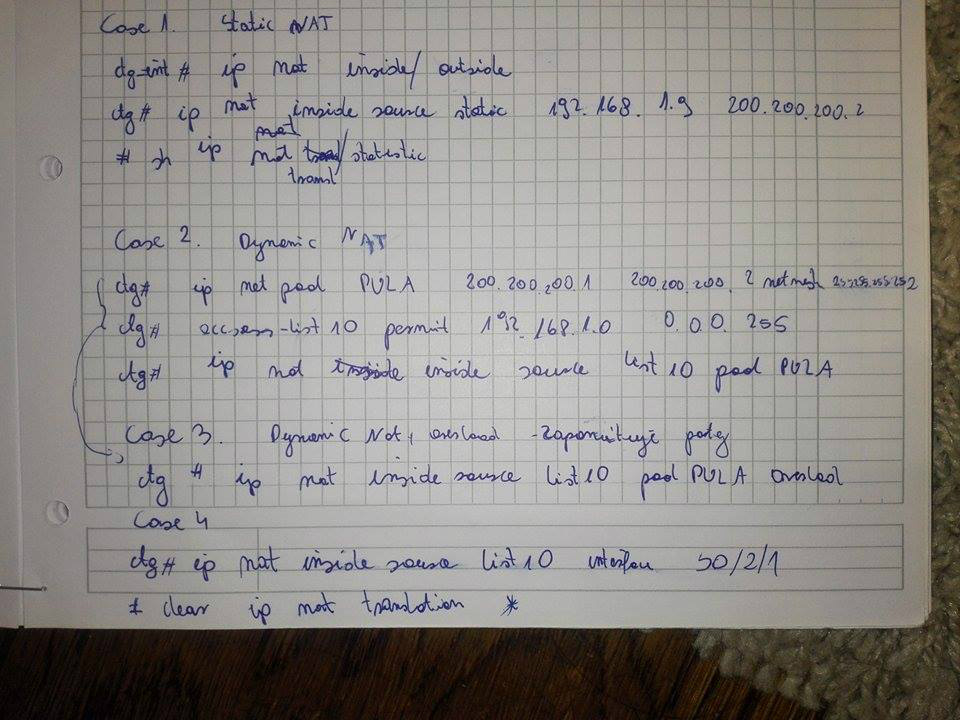 Case 1. Static NAT
cfg-int # ip nat inside/outside
cfg# ip nat inside source static 192.168.1.9 200.200.200.2
# sh ip nat transl/statistic
Case 2. Dynamic NAT
cfg# ip nat pool PULA 200.200.200.1 200.200.200.2 netmask 255.255.255.252
cfg# access-list 10 permit 192.168.1.0 0.0.0.255
cfg# ip nat inside source list 10 pool PULA
Case 3. Dynamic Nat, overload - zapamiętuje porty
cfg # ip nat inside source list 10 pool PULA overload
Case 4
cfg# ip nat inside source list 10 interface S0/2/1
# clear ip nat translation *